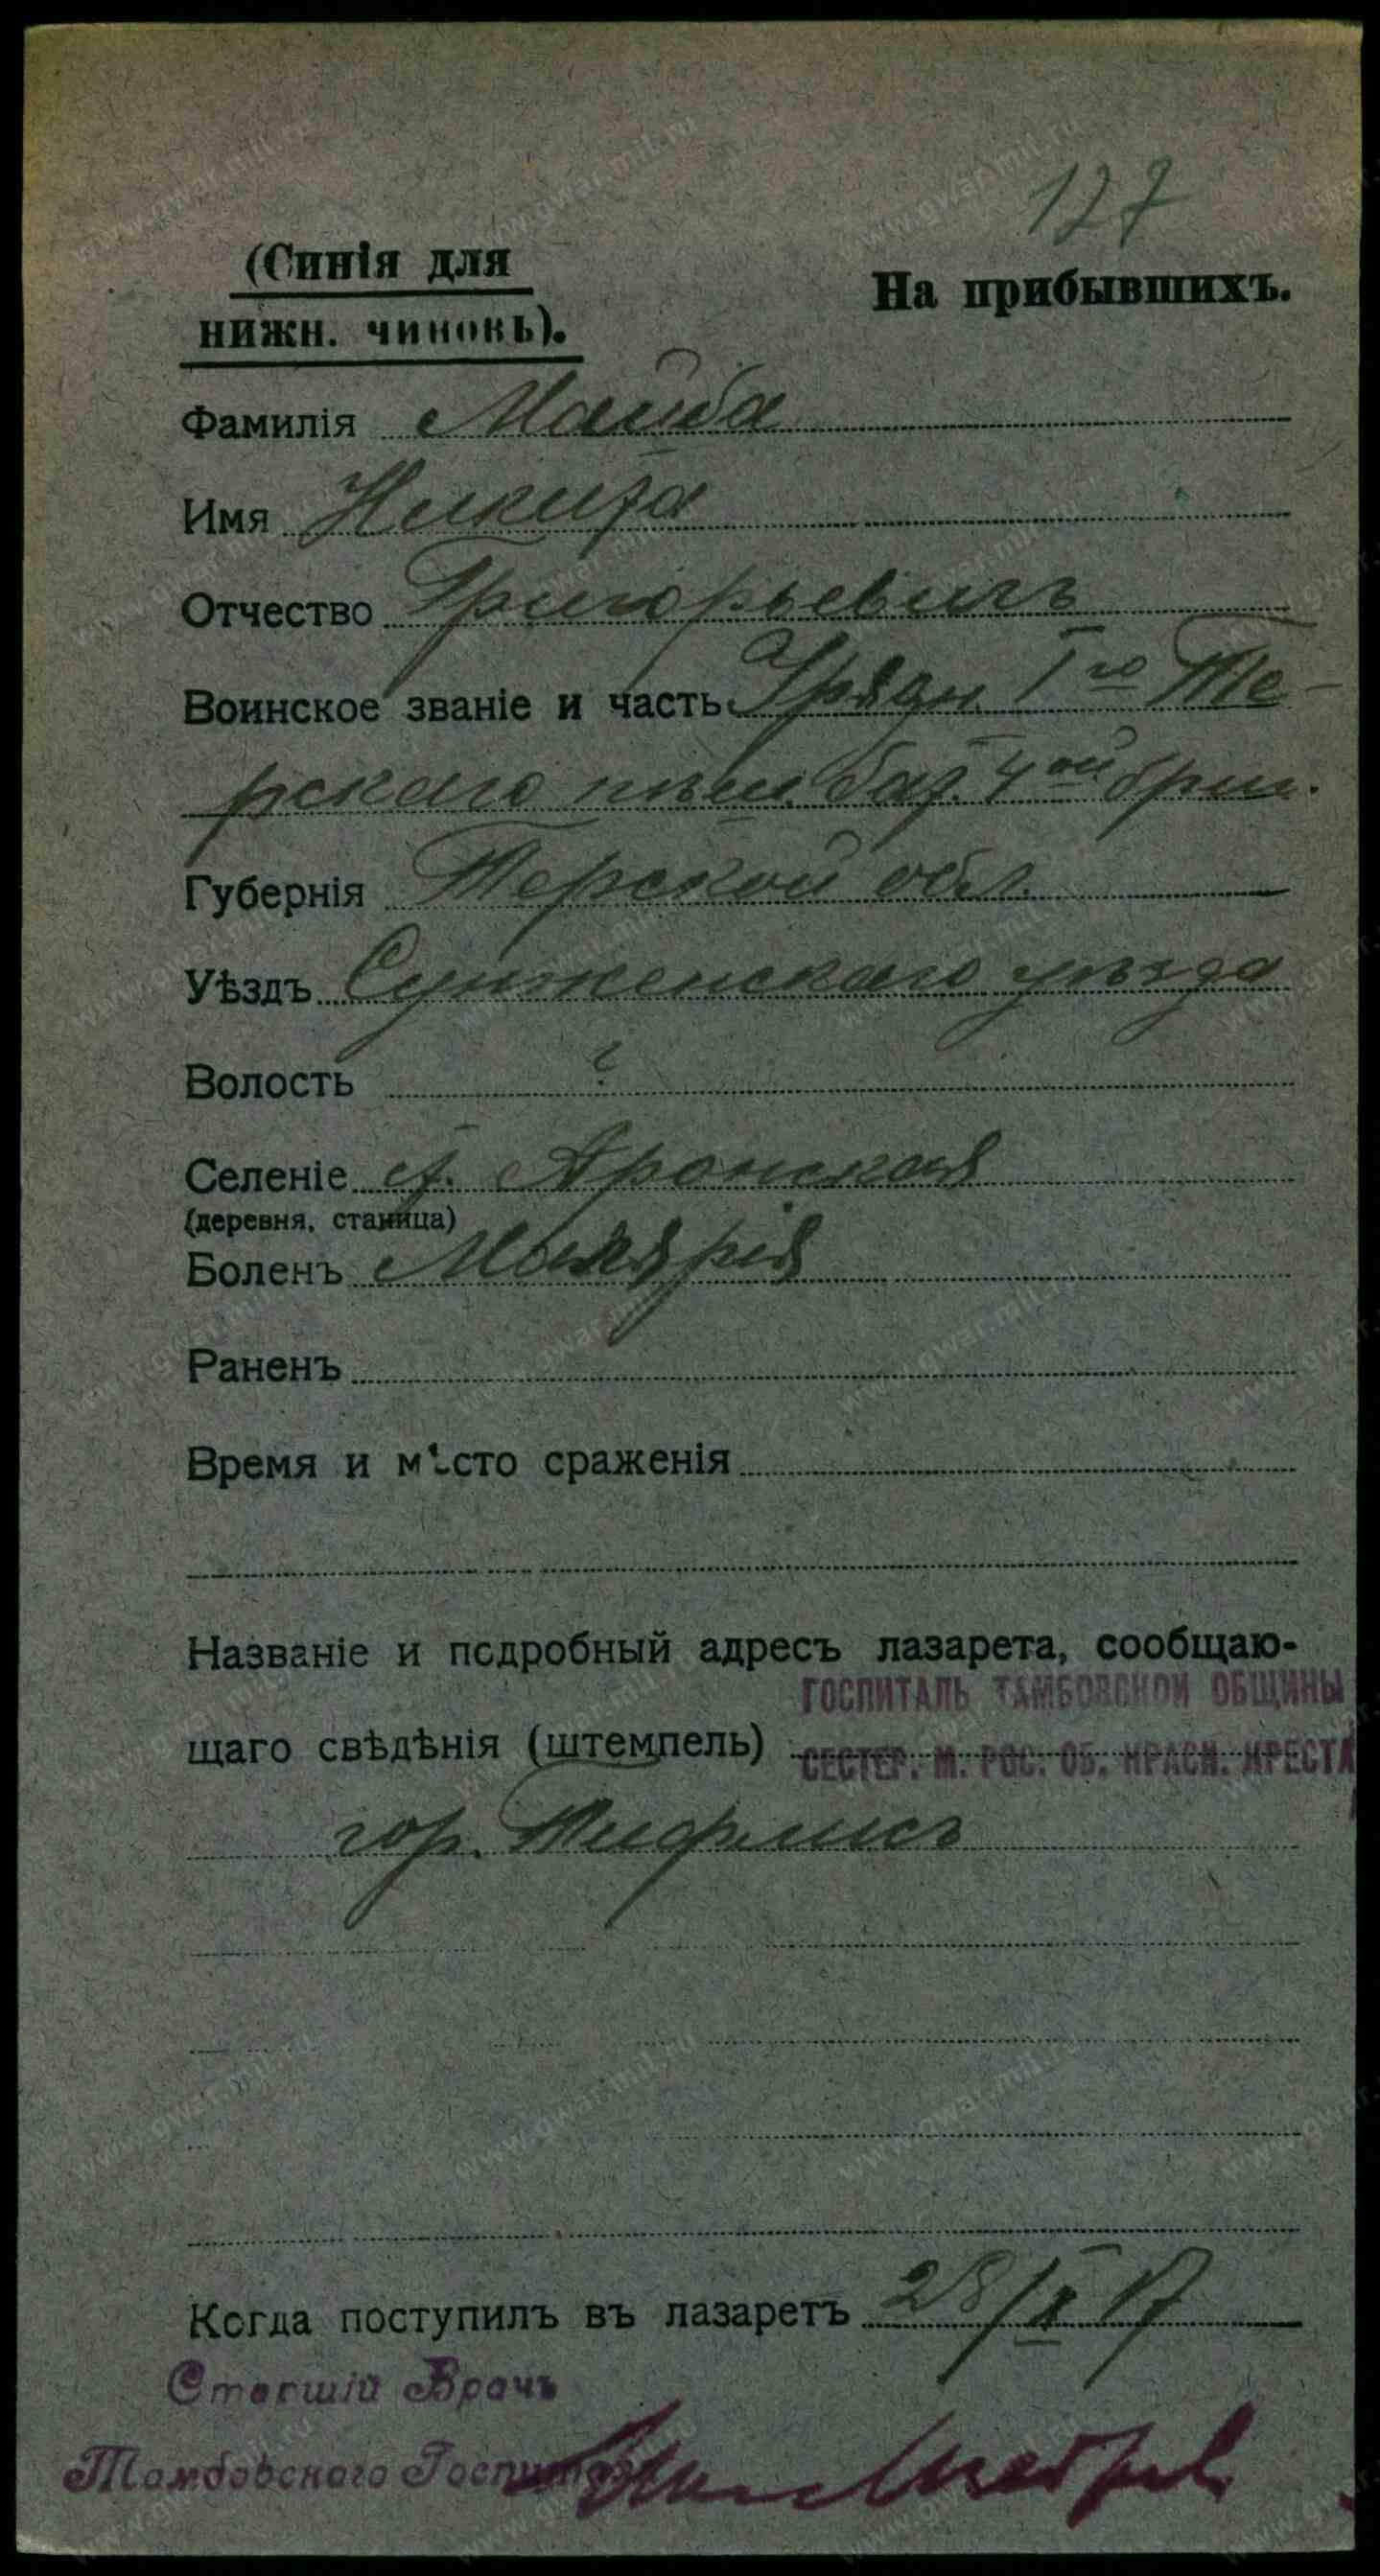 127
(Синія для
нижн. чиновъ).
На прибывшихъ.
Фамилія Маиба
Имя Никита
Отчество Григорьевичъ
Воинское званіе и часть Урядн. I го Те-
рскаго пѣш. бат. 4ой бриг.
Губернія Терской обл.
Уѣздъ Сунженскаго уѣзда
Волость ?
Селеніе с.
(деревня, станица)
Боленъ Малярія
Раненъ
Время и мѣсто сраженія
Названіе и подробный адресъ лазарета, сообщаю-
ГОСПИТАЛЬ ТАМБОВСКОЙ ОБЩИНЫ
щаго свѣдѣнія (штемпель)
СЕСТЕР. М. РОС. ОБ. КРАСН. КРЕСТА
гор. Тифлисъ
Когда поступилъ въ лазаретъ 28/X 17
Старшій Врачъ
Тамбовскаго Госпиталя